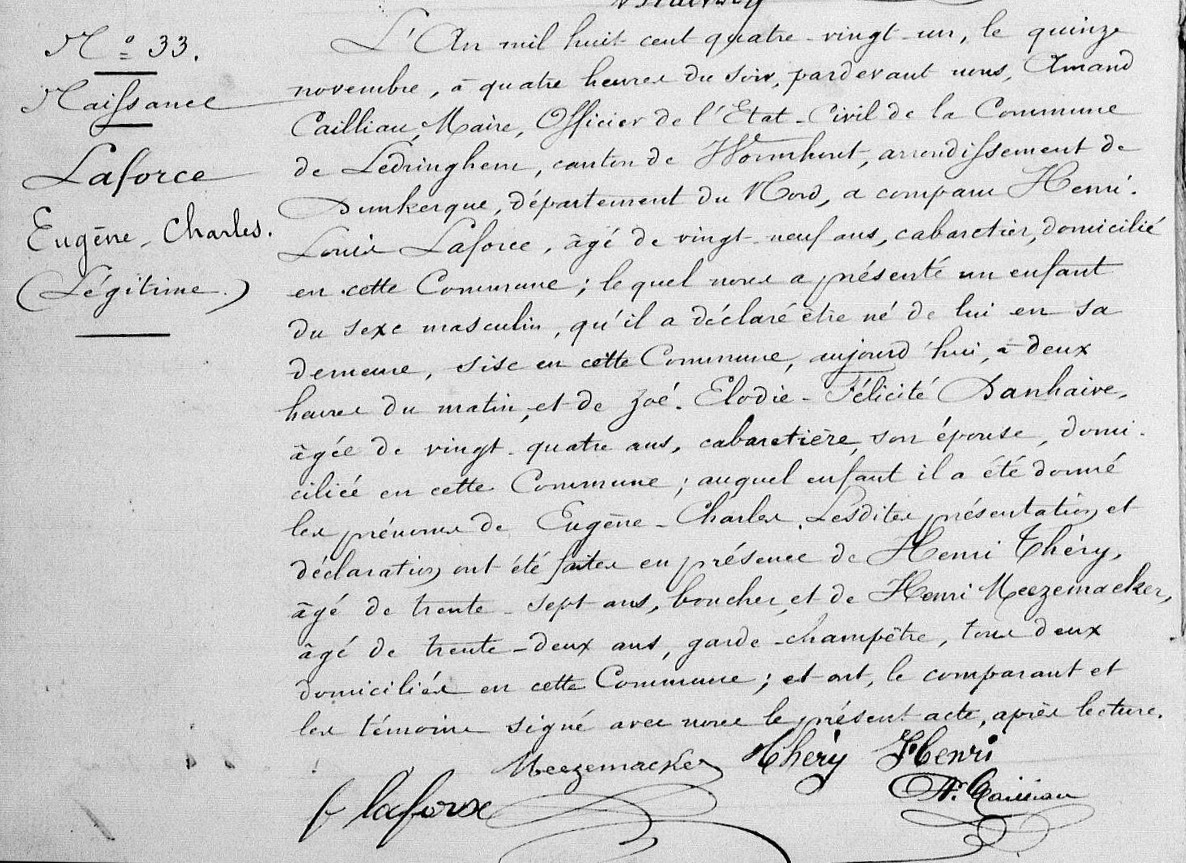 N° 33.
Naissance
Laforce
Eugène-Charles.
(Légitime.)
L'An mil huit cent quatre-vingt-un, le quinze
novembre, à quatre heures du soir, pardevant nous, Amand
Cailliau, Maire, Officier de l'Etat-Civil de la Commune
de Ledringhem, canton de Wormhout, arrondissement de
Dunkerque, département du Nord, a comparu Henri-
Louis Laforce, âgé de vingt-neuf ans, cabaretier, domicilié
en cette Commune; lequel nous a présenté un enfant
du sexe masculin, qu'il a déclaré être né de lui en sa
demeure, sise en cette Commune, aujourd'hui, à deux
heures du matin, et de Zoé-Elodie-Félicité Danhaive,
âgée de vingt-quatre ans, cabaretière, son épouse, domi-
ciliée en cette Commune; auquel enfant il a été donné
les prénoms de Eugène-Charles. Lesdites présentation et
déclaration ont été faites en présence de Henri Théry,
âgé de trente-sept ans, boucher, et de Henri Meezemaecker,
âgé de trente-deux ans, garde-champêtre, tous deux
domiciliés en cette Commune; et ont, le comparant et
les témoins signé avec nous le présent acte, après lecture.
Meezemacker Théry Henri
laforce A. Cailliau